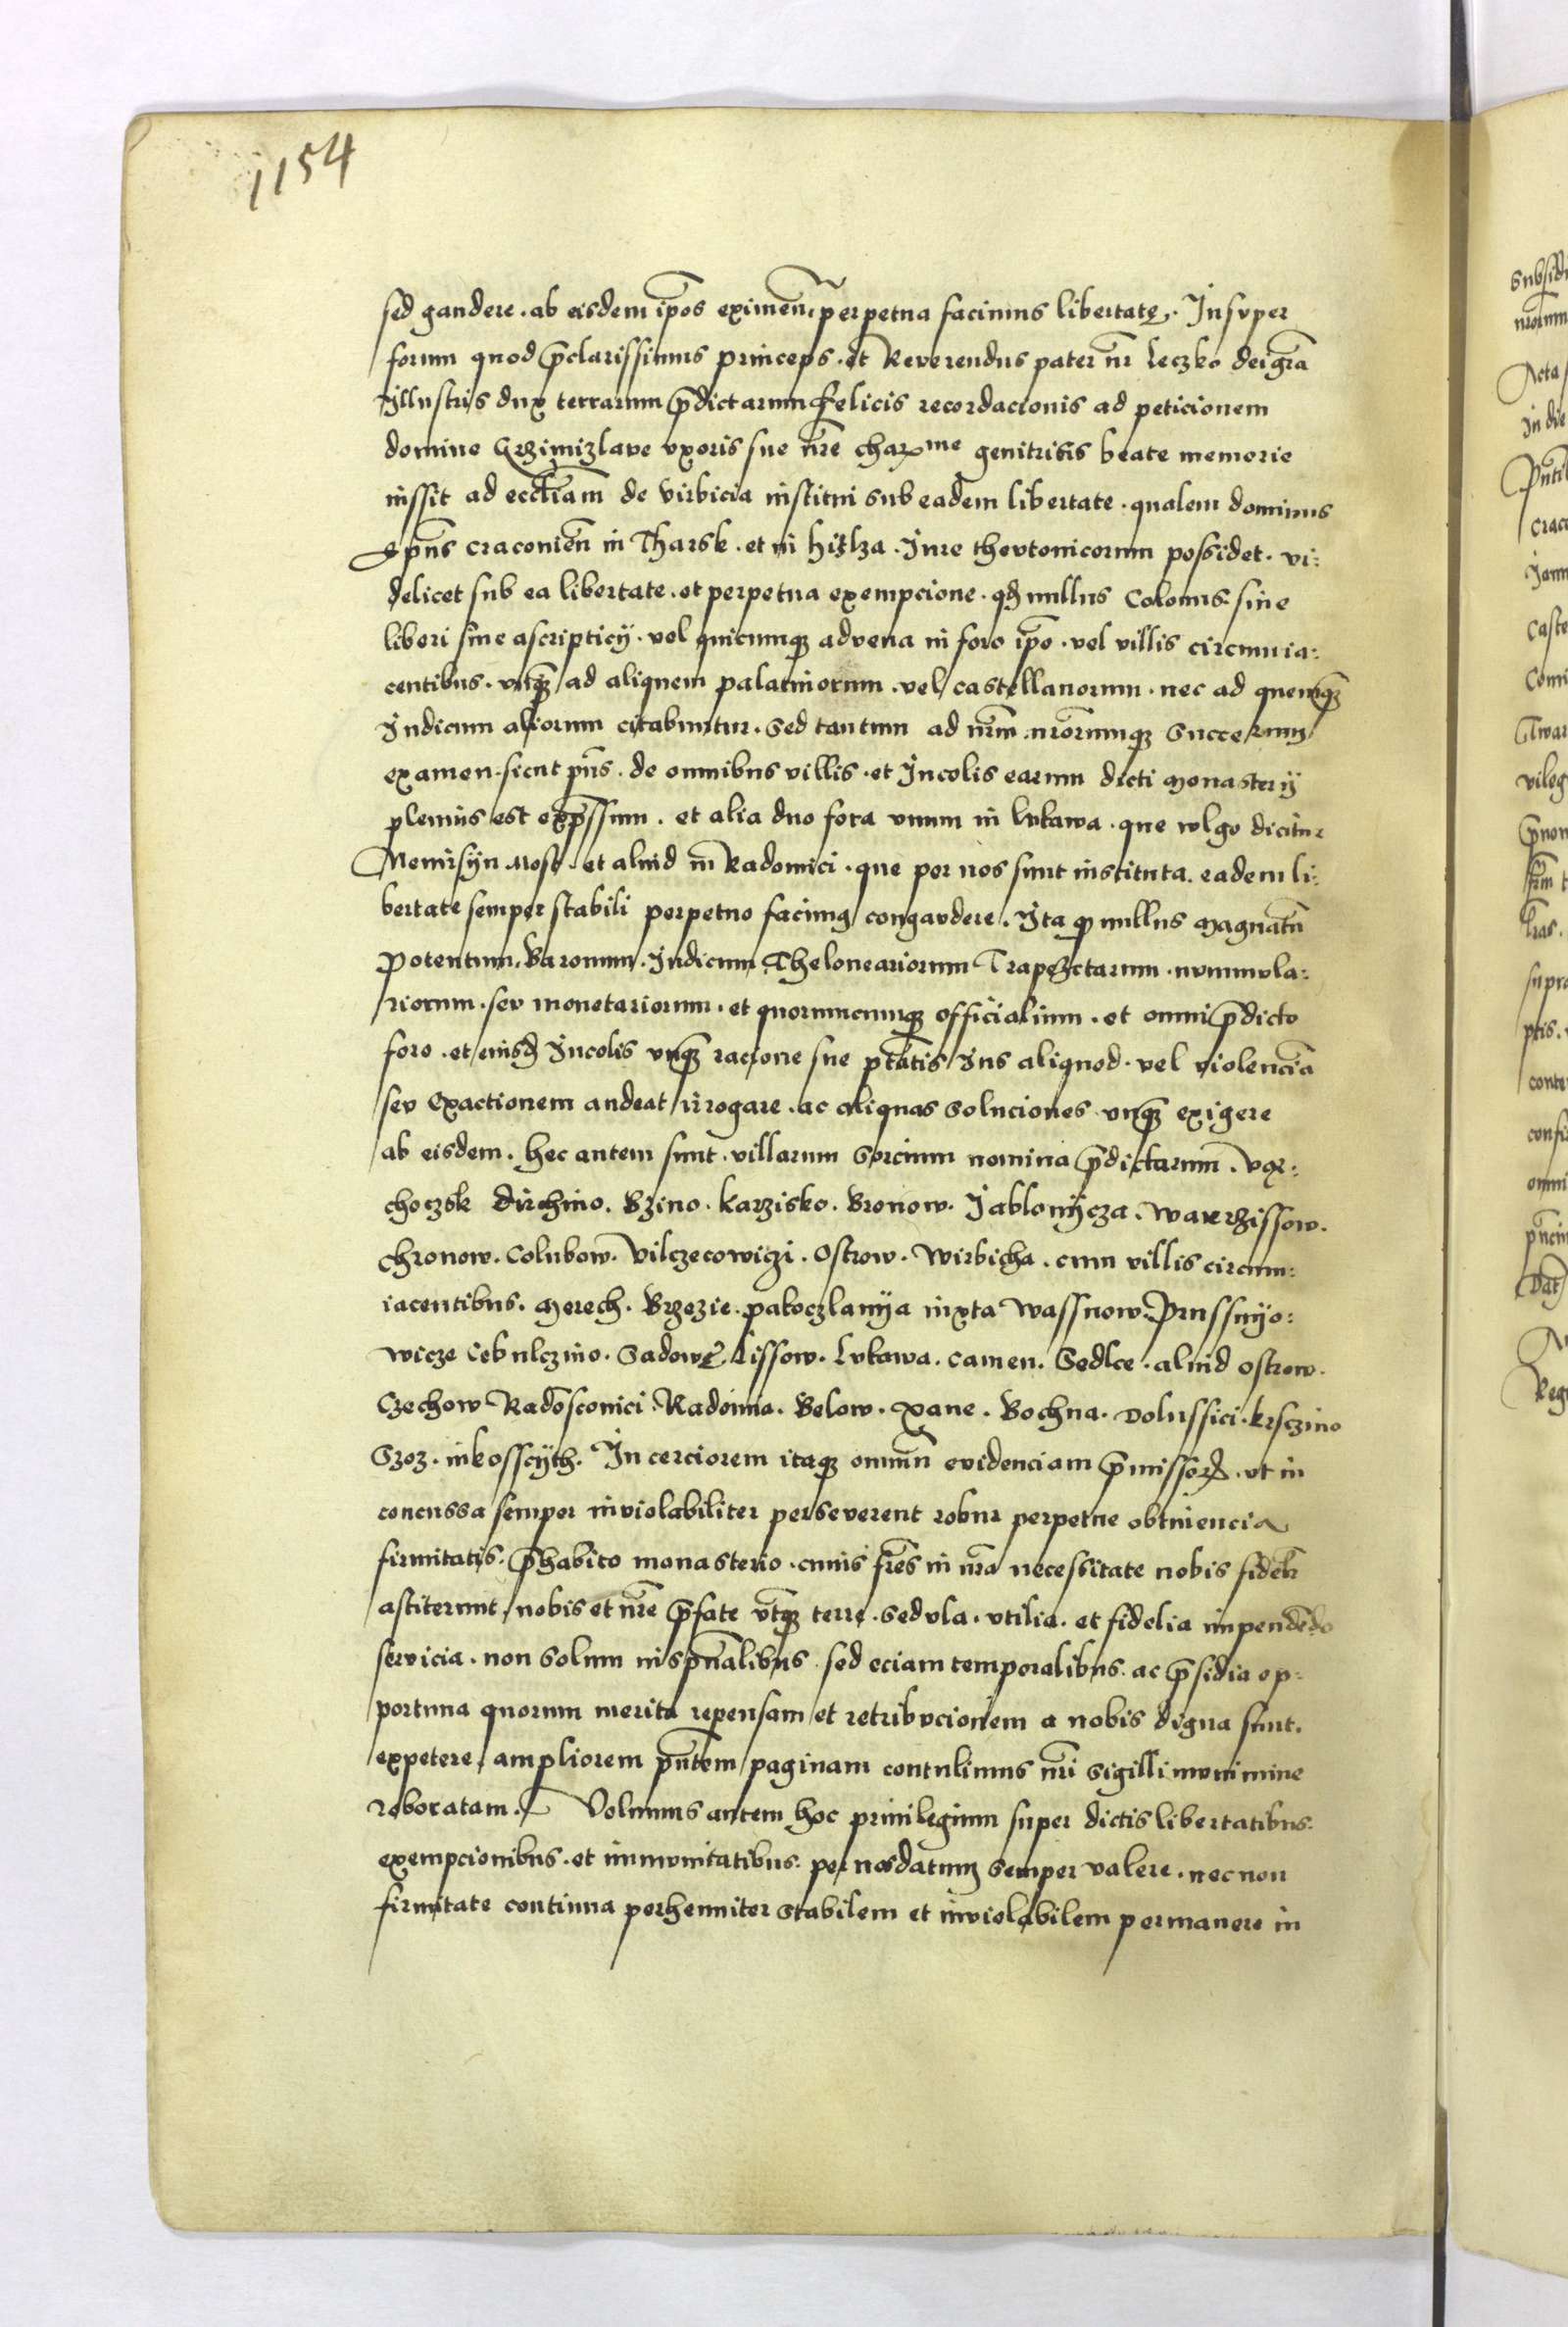 1154
sed gaudere . ab eisdem ip̄os eximen̄. perpetua facimus libertate . Insvper
forum quod p̄clarissimus princeps . et Reverendus pater nr̄ Leczko dei gr̄a
Illustris dux terrarum p̄dictarum felicis recordacionis ad peticionem
domine Grzimizlave vxoris sue nr̄e charme genitricis beate memorie
iussit ad eccl̄iam de Virbicia institui sub eadem libertate . qualem dominus
Ep̄us craconien̄ in Tharsk . et in hizlza . Iure thevtonicorum possidet . vi:
delicet sub ea libertate . et perpetua exempcione . qđ nullus Colonus . siue
liberi siue ascripticij . vel quicumqȝ advena in foro ip̄o . vel villis circumia:
centibus . vnqȝ ad aliquem palatinorum . vel castellanorum . nec ad quemqȝ
Iudicum aliorum citabuntur . Sed tantum ad nr̄m nr̄orumqȝ Succe
examen . sicut pn̄s . de omnibus villis . et Incolis earum dicti Monasterij
plenius est exp̄ssum . et alia duo fora vnum in Lvkawa . que wlgo dicitur
Nemirsijn Most . et aliud in Radomici . que per nos sunt instituta . eadem li:
bertate semper stabili perpetuo facimus congavdere . Ita qȝ nullus Magnatū
Potentum . Baronum . Iudicum Theloneariorum Trapezetarum . nvmmvla:
riorum . sev monetariorum . et quorumcumqȝ officialium . et omni p̄dicto
foro . et eiusđ Incolis vnqȝ racione sue pt̄atis Ius aliquod . vel violenciā
sev exactionem audeat irrogare . ac aliquas Soluciones vnqȝ exigere
ab eisdem . hec autem sunt . villarum Sorcium nomina p̄dictarum . Vor:
choczsk Mirchino . Bzino . Karzisko . Bronow . Iablonijcza . Wawrzissow .
Chronow . Colubow . Vilczecowiczi . Ostrow . Wirbicha . cum villis circum:
iacentibus . Merech . Brzezie . pakoczlawija iuxta Wassnow . Prussnijo:
wicze Cebulczino . Sadowe . Lissow . Lvkawa . Camen . Sedlce . aliud Ostrow .
Czechow Radosconici . Radomia . Below . Xane . Bochna . Dolussici . Krsczino
Szoz . inkosscijth . In cerciorem itaqȝ omniū evidenciam p̄missorȝ . vt in
concussa semper inviolabiliter perseverent robur perpetue obtinencia
firmitatis . p̄habito monasterio . cuius fr̄es in nr̄a necessitate nobis fidelr̄
astiterunt . nobis et nr̄e p̄fate vtqȝ terre . Sedvla . vtilia . et fidelia impendēdo
servicia . non Solum in sp̄ualibus . sed eciam temporalibus . ac p̄sidia op:
portuna quorum merita repensam et retribvcionem a nobis digna sunt .
expetere . ampliorem pn̄tem paginam contulimus nr̄i Sigilli mvnimine
roboratam . Volumus autem hoc privilegium super dictis libertatibus .
exempcionibus . et immvnitatibus . per nos datum semper valere . nec non
firmitate continua perhenniter stabilem et inviolabilem permanere in